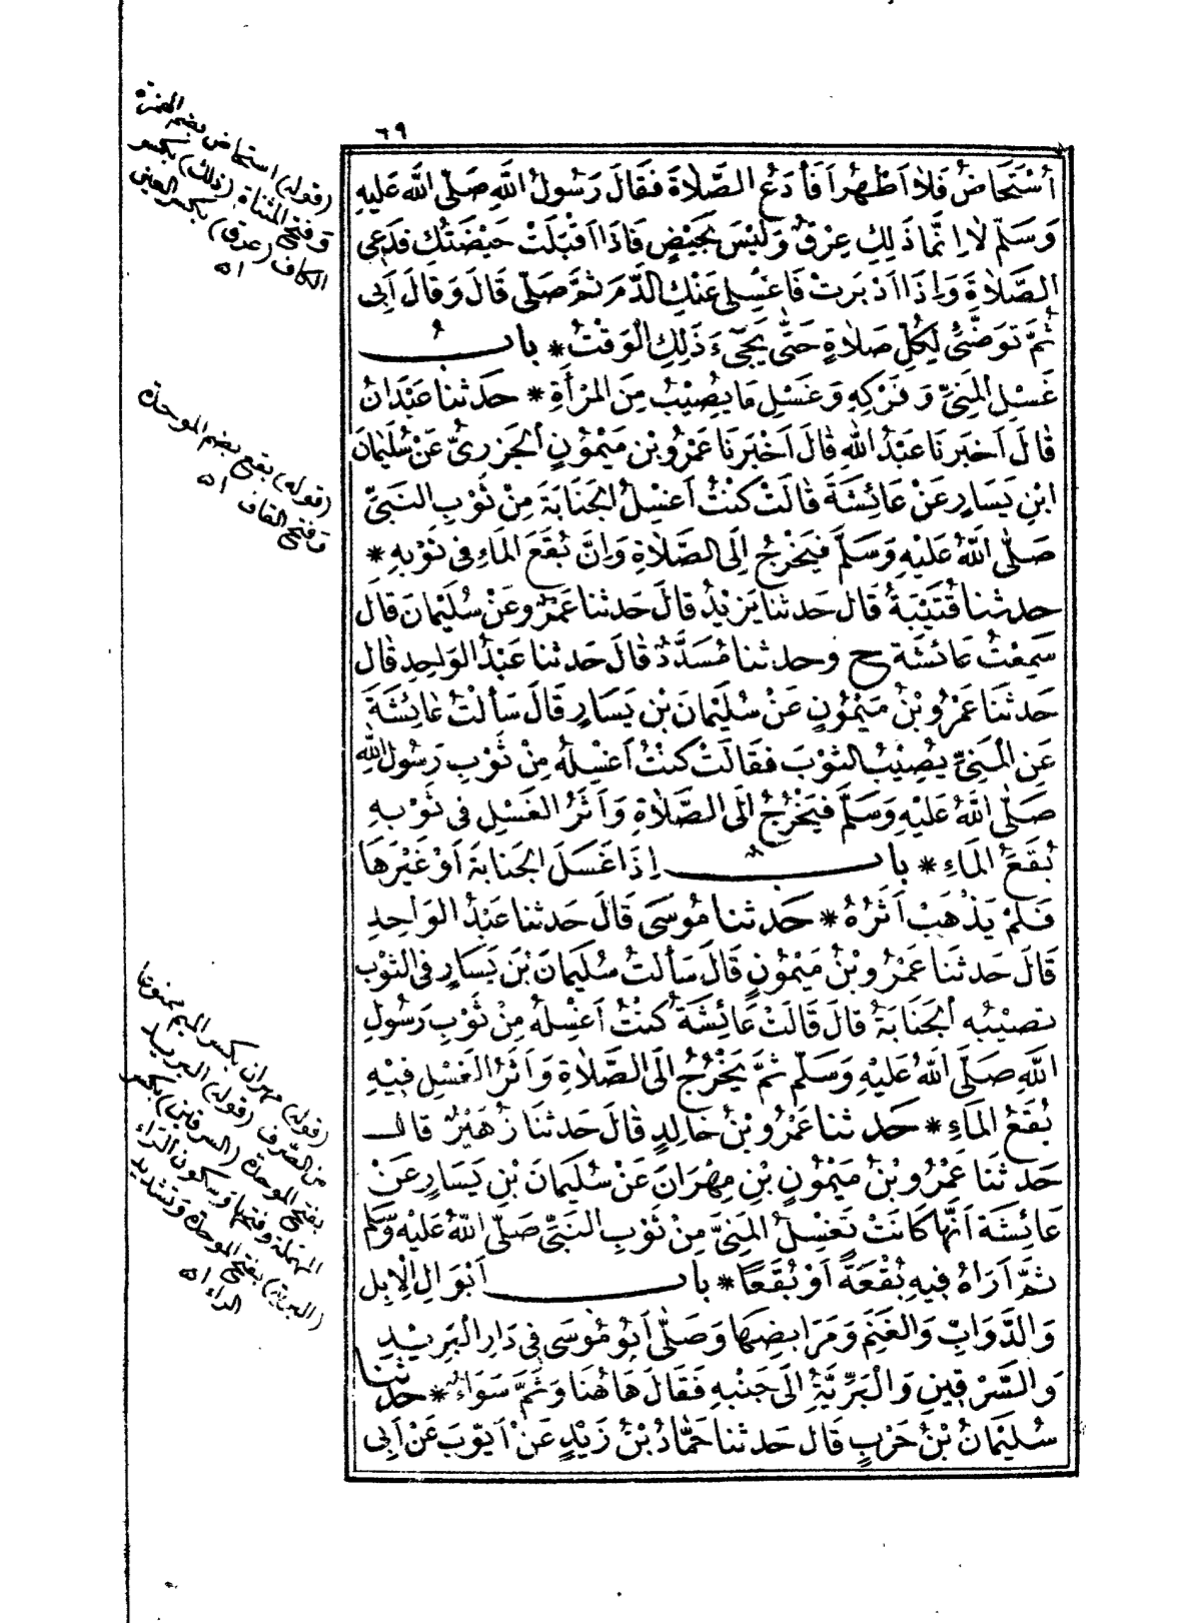 ٦٩
أُسْتَحَاضُ فَلَا أَطْهُرُ أَفَأَدَعُ الصَّلَاةَ فَقَالَ رَسُولُ اللَّهِ صَلَّى اللَّه عَلَيْهِ
وَسَلَّمَ لَا إِنَّمَا ذَلِكِ عِرْقٌ وَلَيْسَ بِحَيْضٍ فَإِذَا أَقْبَلَتْ حَيْضَتُكِ فَدَعِي
الصَّلَاةَ وَإِذَا أَدْبَرَتْ فَاغْسِلِي عَنْكِ الدَّمَ ثُمَّ صَلِّي قَالَ وَقَالَ أَبِي
ثُمَّ تَوَضَّئِي لِكُلِّ صَلَاةٍ حَتَّى يَجِيءَ ذَلِكِ الْوَقْتُ * بابُ
غَسْلِ الْمَنِيِّ وَفَرْكِهِ وَغَسْلِ مَا يُصِيْبُ مِنَ الْمَرْأَةِ * حَدثنا عَبْدَانُ
قَالَ أَخْبَرَنَا عَبْدُ اللَّهِ قَالَ أَخْبَرَنَا عَمْرُو بْن مَيْمُوْنٍ الْجَزَرِيُّ عَنْ سُلَيْمَانَ
ابْنِ يَسَارٍ عَنْ عَائِشَةَ قَالَتْ كُنْتُ أَغْسِلُ الْجَنَابَةَ مِنْ ثَوْبِ النَّبِيِّ
صَلَّى اللَّهُ عَلَيْهِ وَسَلَّمَ فَيَخْرُجُ إِلَى الصَّلَاةِ وَإِنَّ بُقَعَ الْمَاءِ فِي ثَوْبِهِ *
حدثنا قُتَيْبَةُ قَالَ حَدثنا يَزِيْدُ قَالَ حَدثنا عَمْرٌو عَنْ سُلَيْمَانَ قَالَ
سَمِعْتُ عَائشَة ح وحدثنا مُسَدَّدٌ قَالَ حَدثنا عَبْدُ الوَاحِدِ قَالَ
حَدثنَا عَمْرُو بْنُ مَيْمُوْنٍ عَنْ سُلَيْمَانَ بْنِ يَسَارٍ قَالَ سَأَلْتُ عَائِشَةَ
عَنِ الْمَنِيِّ يُصِيْبُ الثَوْبَ فَقَالَتْ كُنْتُ أَغْسِلُهُ مِنْ ثَوْبِ رَسُولِ اللَّهِ
صَلَّى اللَّهُ عَلَيْهِ وَسَلَّمَ فَيَخْرُجُ إِلَى الصَّلَاةِ وَأَثَرُ الْغَسْلِ فِي ثَوْبِهِ
بُقَعُ الْمَاءِ * بابُ إِذَا غَسَلَ الْجَنَابَةَ أَوْ غَيْرَهَا
فَلَمْ يَذْهَبْ أَثَرُهُ * حَدثنا مُوسَى قَالَ حَدثنا عَبْدُ الوَاحِدِ
قَالَ حَدثنَا عَمْرُو بْنُ مَيْمُوْنٍ قَالَ سَأَلتُ سُلَيْمَانَ بْنَ يَسَارٍ فِي الثَوْبِ
تصيْبُه الْجَنَابَةُ قَالَ قَالَتْ عَائِشَةُ كُنْتُ أَغْسِلُهُ مِنْ ثَوْبِ رَسُولِ
اللَّهِ صَلَّى اللَّهُ عَلَيْهِ وَسَلَّمَ ثُمَّ يَخْرُجُ إِلَى الصَّلَاةِ وَأَثَرُ الْغَسْلِ فِيْهِ
بُقَعُ الْمَاءِ * حَدثنا عَمْرُو بْنُ خَالِدٍ قَالَ حَدثنَا زُهَيْرٌ قَالَ
حَدثنَا عَمْرُو بْنُ مَيْمُوْنٍ بْنِ مِهْرَانَ عَنْ سُلَيْمَانَ بْنِ يَسَارٍ عَنْ
عَائِشَةَ أَنَّهَا كَانَتْ تَغْسِلُ الْمَنِيَّ مِنْ ثَوْبِ النَّبِيِّ صَلَّى اللَّهُ عَلَيْهِ وَسَلَّمَ
ثُمَّ أَرَاهُ فِيهِ بُقْعَةً أَوْ بُقَعًا * باب أَبْوَالِ الْإِبِلِ
وَالدَّوَابِّ وَالْغَنَمِ وَمَرَابِضِهَا وَصَلَّى أَبُو مُوسَى فِي دَارِ الْبَرِيْدِ
وَالسِّرْقِينِ وَالْبَرِّيَّةُ إِلَى جَنْبِهِ فَقَالَ هَاهُنَا وَثَمَّ سَوَاءٌ * حَدثنا
سُلَيْمَانُ بْنُ حَرْبٍ قَال حَدثنا حَمَّادُ بْنُ زَيْدٍ عَنْ أَيوّبَ عَنْ أَبِي
(قوله) استحاض بضم الهمزة
وفتح المثناة (ذلك) بكسر
الكاف (عرق) بكسر العين
اه
(قوله) بقع بضم الموحدة
وفتح القاف اه
(قوله) مهران بكسر الميم ممنوعا
من الصّرف (قوله) البريد
بفتح الموحدة (السرقين) بكسر
المهملة وفتحها وسكون الراء
(البرية) بفتح الموحدة وتشديد
الراء اه